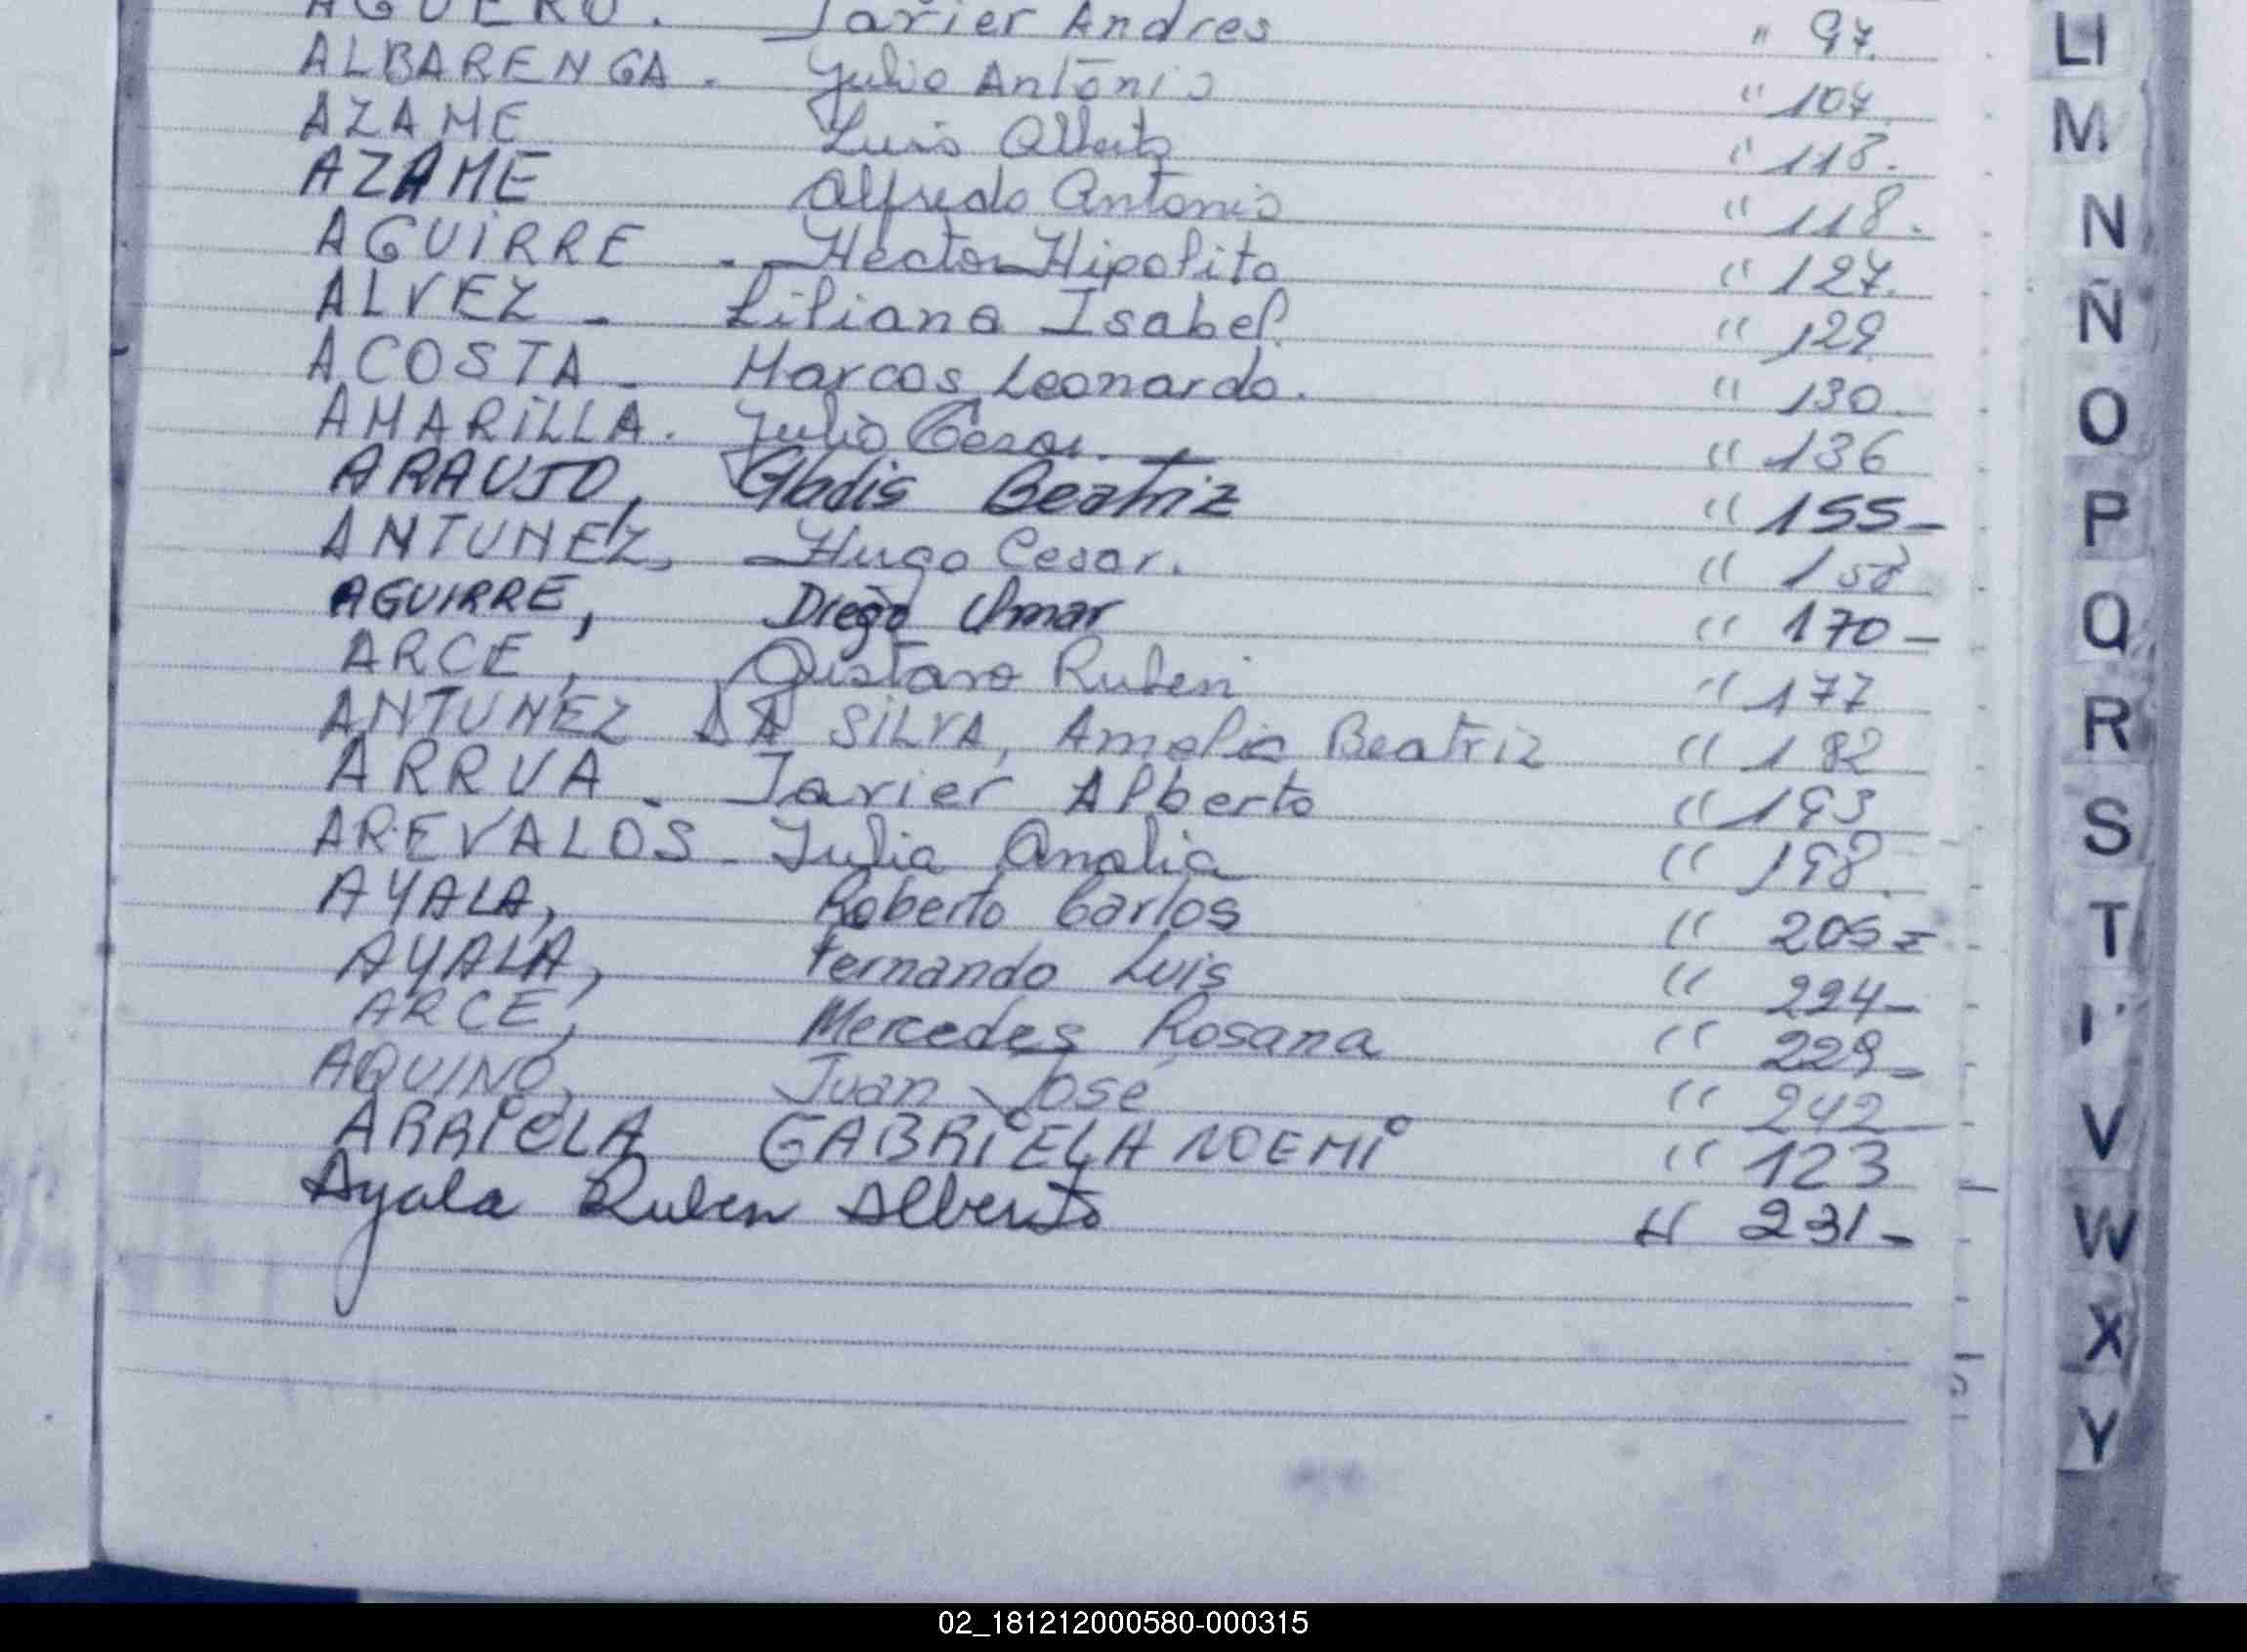 AGUERO. Javier Andres " 97.
ALBARENGA. Julio Antonio " 107.
AZAME Luis Alberto " 118.
AZAME Alfredo Antonio " 118.
AGUIRRE - Hector Hipolito " 127.
ALVEZ - Liliana Isabel. " 129
ACOSTA - Marcos Leonardo. " 130.
AMARILLA. Julio Cesar. " 136
ARAUJO, Gladis Beatriz " 155-
ANTUNEZ, Hugo Cesar. " 158
AGUIRRE, Diego Omar " 170-
ARCE, Gustavo Ruben " 177
ANTUNEZ DA SILVA, Amelia Beatriz " 182
ARRUA - Javier Alberto " 193
AREVALOS - Julia Analia " 198.
AYALA, Roberto Carlos " 205=
AYALA, Fernando Luis " 224-
ARCE, Mercedes Rosana " 229-
AQUINO, Juan José " 242
ARRIOLA GABRIELA NOEMI " 123
Ayala Ruben Alberto " 231-
LI
M
N
Ñ
O
P
Q
R
S
T
V
W
X
Y
02_181212000580-000315